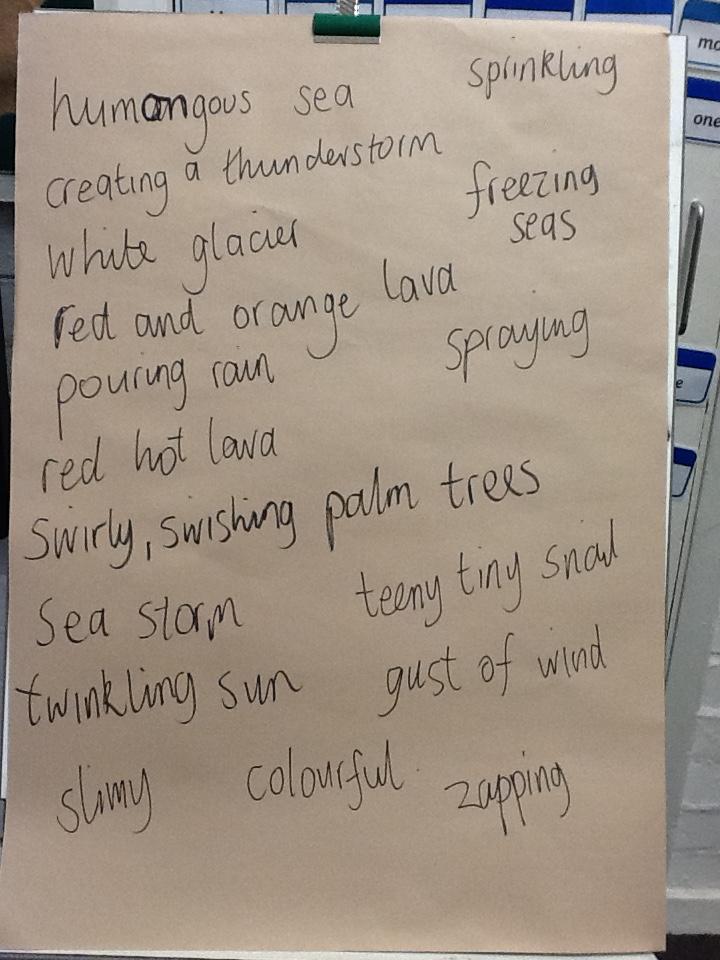 humongous sea
sprinkling
creating a thunderstorm
freezing
seas
white glacier
red and orange lava
spraying
pouring rain
red hot lava
swirly, swishing palm trees
sea storm
teeny tiny snail
twinkling sun
gust of wind
slimy
colourful
zapping
one